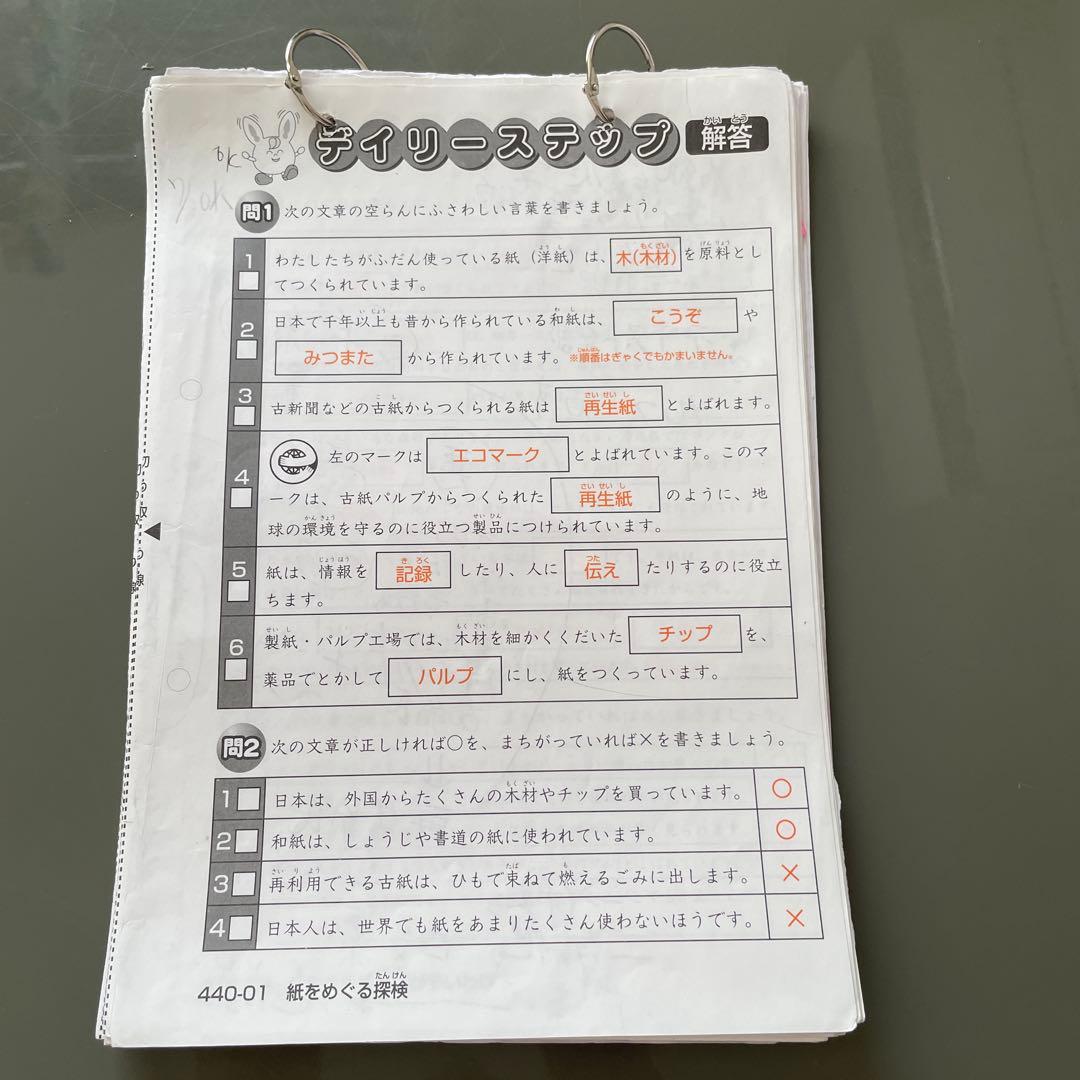 デイリーステップ 解答
かい とう
OK
OK
問1 次の文章の空らんにふさわしい言葉を書きましょう。
1 わたしたちがふだん使っている紙(洋紙)は、木(木材)を原料とし
てつくられています。
2 日本で千年以上も昔から作られている和紙は、こうぞ や
みつまた から作られています。※順番はぎゃくでもかまいません。
3 古新聞などの古紙からつくられる紙は 再生紙 とよばれます。
4 左のマークは エコマーク とよばれています。このマ
ークは、古紙パルプからつくられた 再生紙 のように、地
球の環境を守るのに役立つ製品につけられています。
5 紙は、情報を 記録 したり、人に 伝え たりするのに役立
ちます。
6 製紙・パルプ工場では、木材を細かくくだいた チップ を、
薬品でとかして パルプ にし、紙をつくっています。
問2 次の文章が正しければ○を、まちがっていれば×を書きましょう。
1 日本は、外国からたくさんの木材やチップを買っています。 ○
2 和紙は、しょうじや書道の紙に使われています。 ○
3 再利用できる古紙は、ひもで束ねて燃えるごみに出します。 ×
4 日本人は、世界でも紙をあまりたくさん使わないほうです。 ×
440-01 紙をめぐる探検
切り取り線